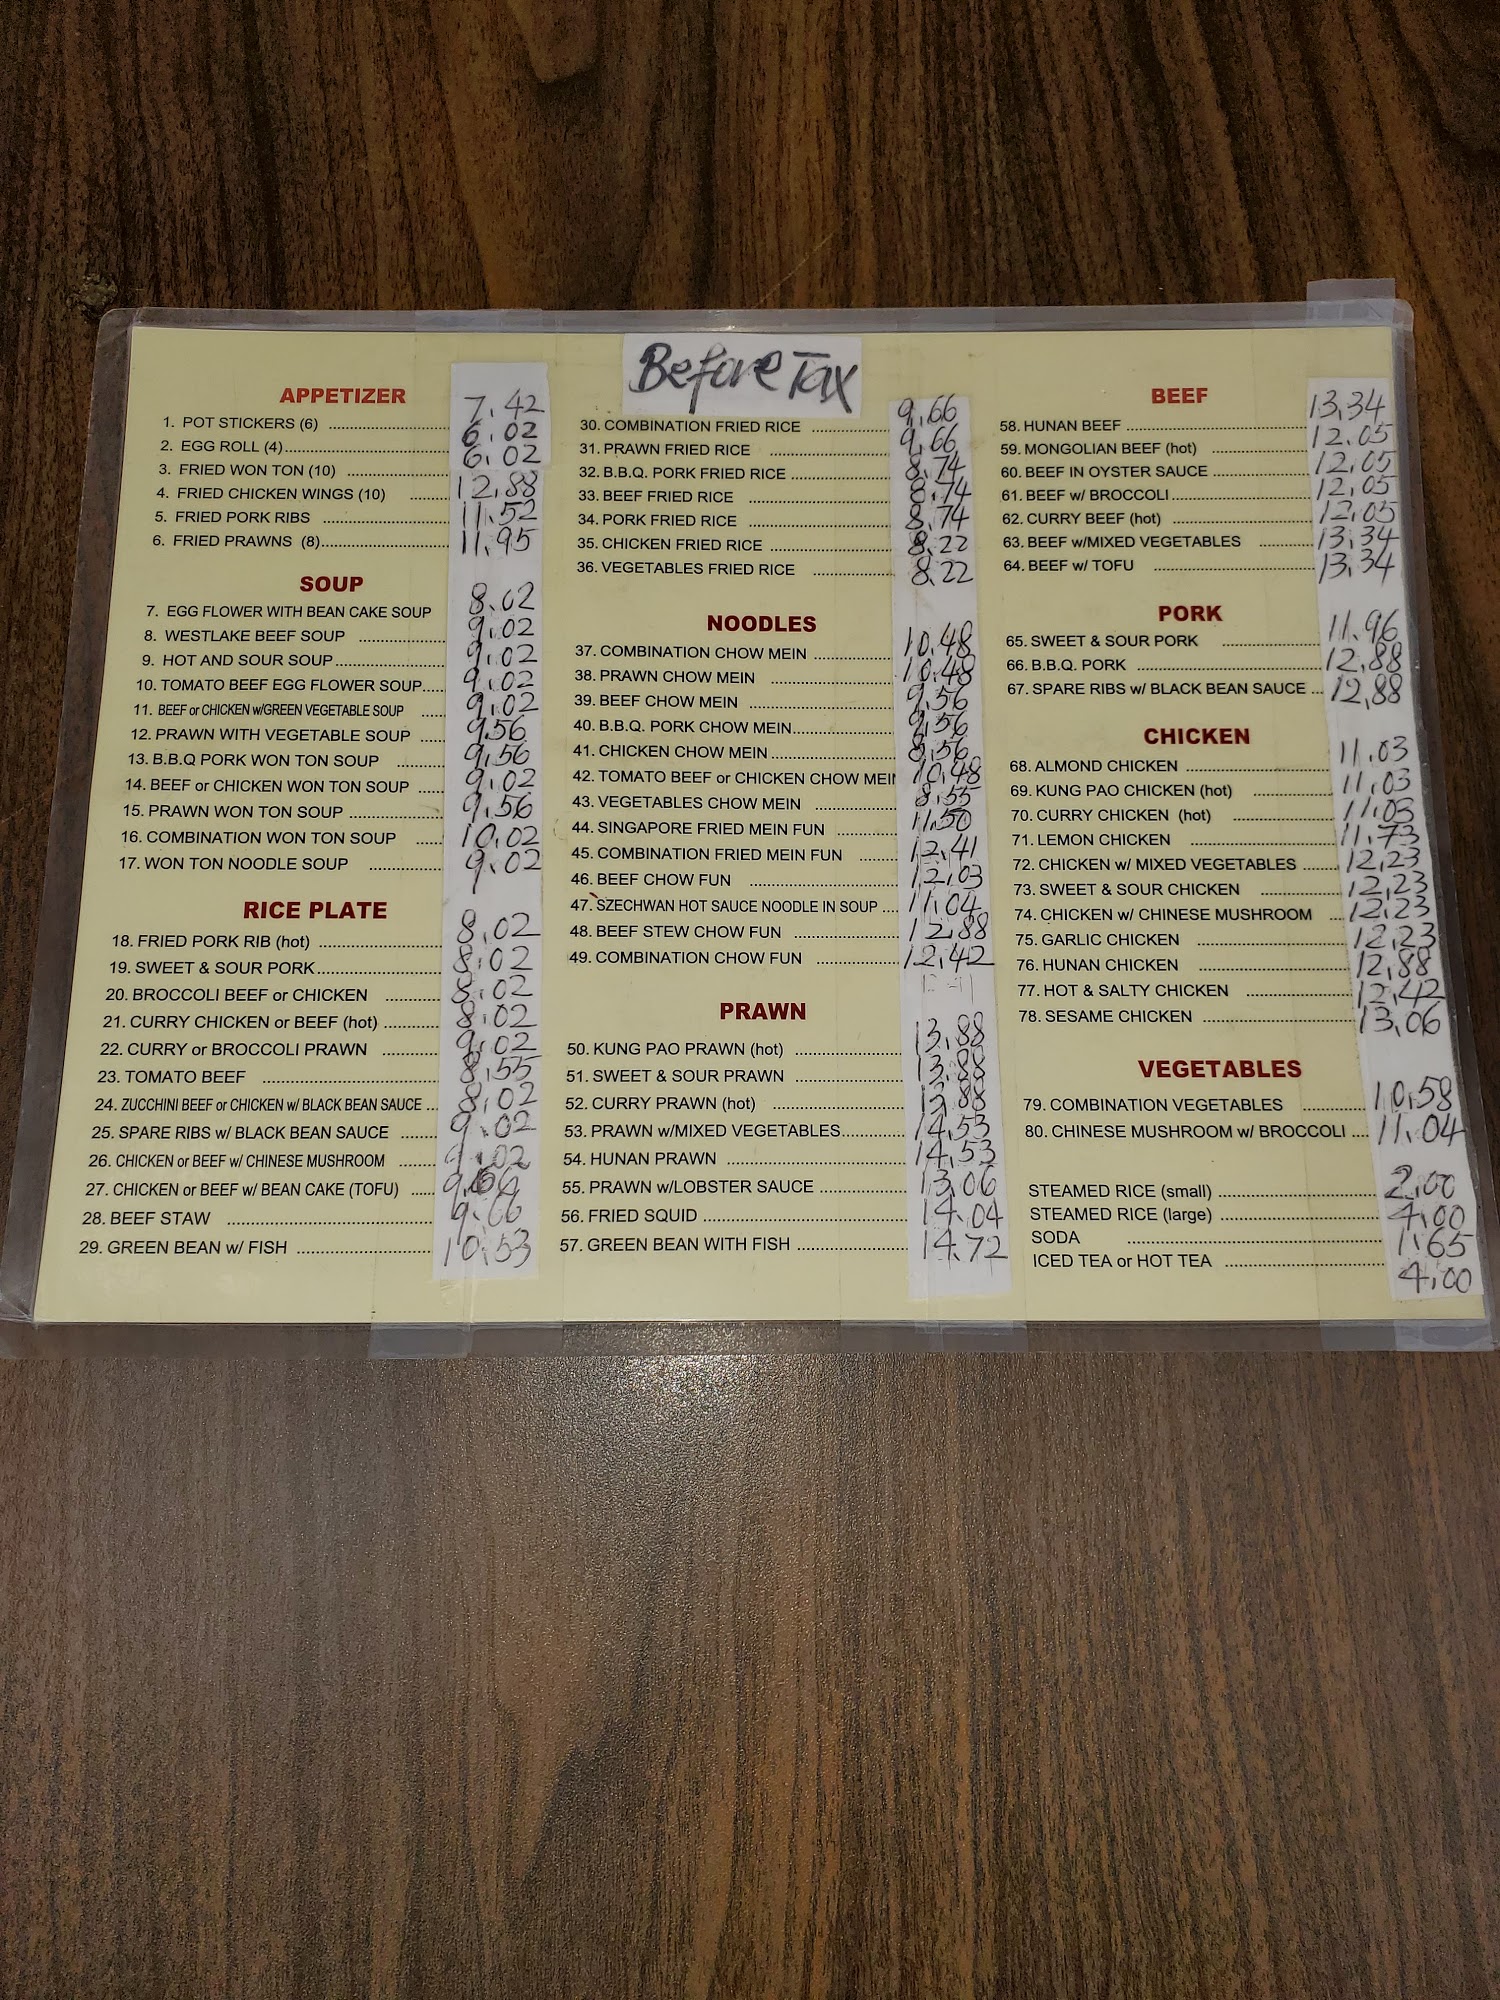 Before Tax
APPETIZER
1. POT STICKERS (6) 7.42
2. EGG ROLL (4) 6.02
3. FRIED WON TON (10) 6.02
4. FRIED CHICKEN WINGS (10) 12.88
5. FRIED PORK RIBS 11.52
6. FRIED PRAWNS (8) 11.95
SOUP
7. EGG FLOWER WITH BEAN CAKE SOUP 8.02
8. WESTLAKE BEEF SOUP 9.02
9. HOT AND SOUR SOUP 9.02
10. TOMATO BEEF EGG FLOWER SOUP 9.02
11. BEEF or CHICKEN w/GREEN VEGETABLE SOUP 9.02
12. PRAWN WITH VEGETABLE SOUP 9.56
13. B.B.Q PORK WON TON SOUP 9.56
14. BEEF or CHICKEN WON TON SOUP 9.02
15. PRAWN WON TON SOUP 9.56
16. COMBINATION WON TON SOUP 10.02
17. WON TON NOODLE SOUP 9.02
RICE PLATE
18. FRIED PORK RIB (hot) 8.02
19. SWEET & SOUR PORK 8.02
20. BROCCOLI BEEF or CHICKEN 8.02
21. CURRY CHICKEN or BEEF (hot) 8.02
22. CURRY or BROCCOLI PRAWN 9.02
23. TOMATO BEEF 8.55
24. ZUCCHINI BEEF or CHICKEN w/ BLACK BEAN SAUCE 8.02
25. SPARE RIBS w/ BLACK BEAN SAUCE 9.02
26. CHICKEN or BEEF w/ CHINESE MUSHROOM 9.02
27. CHICKEN or BEEF w/ BEAN CAKE (TOFU)
28. BEEF STAW 9.66
29. GREEN BEAN w/ FISH 10.53
30. COMBINATION FRIED RICE 9.66
31. PRAWN FRIED RICE 9.66
32. B.B.Q. PORK FRIED RICE 8.74
33. BEEF FRIED RICE 8.74
34. PORK FRIED RICE 8.74
35. CHICKEN FRIED RICE 8.22
36. VEGETABLES FRIED RICE 8.22
NOODLES
37. COMBINATION CHOW MEIN 10.48
38. PRAWN CHOW MEIN 10.48
39. BEEF CHOW MEIN 9.56
40. B.B.Q. PORK CHOW MEIN 9.56
41. CHICKEN CHOW MEIN
42. TOMATO BEEF or CHICKEN CHOW MEIN 10.48
43. VEGETABLES CHOW MEIN 8.55
44. SINGAPORE FRIED MEIN FUN 11.50
45. COMBINATION FRIED MEIN FUN 12.41
46. BEEF CHOW FUN 12.03
47. SZECHWAN HOT SAUCE NOODLE IN SOUP 11.04
48. BEEF STEW CHOW FUN 12.88
49. COMBINATION CHOW FUN 12.42
PRAWN
50. KUNG PAO PRAWN (hot) 13.88
51. SWEET & SOUR PRAWN 13.88
52. CURRY PRAWN (hot) 13.88
53. PRAWN w/MIXED VEGETABLES 14.53
54. HUNAN PRAWN 14.53
55. PRAWN w/LOBSTER SAUCE 13.06
56. FRIED SQUID 14.04
57. GREEN BEAN WITH FISH 14.72
BEEF
58. HUNAN BEEF 13.34
59. MONGOLIAN BEEF (hot) 12.05
60. BEEF IN OYSTER SAUCE 12.05
61. BEEF w/ BROCCOLI 12.05
62. CURRY BEEF (hot) 12.05
63. BEEF w/MIXED VEGETABLES 13.34
64. BEEF w/ TOFU 13.34
PORK
65. SWEET & SOUR PORK 11.96
66. B.B.Q. PORK 12.88
67. SPARE RIBS w/ BLACK BEAN SAUCE 12.88
CHICKEN
68. ALMOND CHICKEN 11.03
69. KUNG PAO CHICKEN (hot) 11.03
70. CURRY CHICKEN (hot) 11.03
71. LEMON CHICKEN 11.73
72. CHICKEN w/ MIXED VEGETABLES 12.23
73. SWEET & SOUR CHICKEN 12.23
74. CHICKEN w/ CHINESE MUSHROOM 12.23
75. GARLIC CHICKEN 12.23
76. HUNAN CHICKEN 12.88
77. HOT & SALTY CHICKEN 12.42
78. SESAME CHICKEN 13.06
VEGETABLES
79. COMBINATION VEGETABLES 10.58
80. CHINESE MUSHROOM w/ BROCCOLI 11.04
STEAMED RICE (small) 2.00
STEAMED RICE (large) 4.00
SODA 1.65
ICED TEA or HOT TEA 4.00